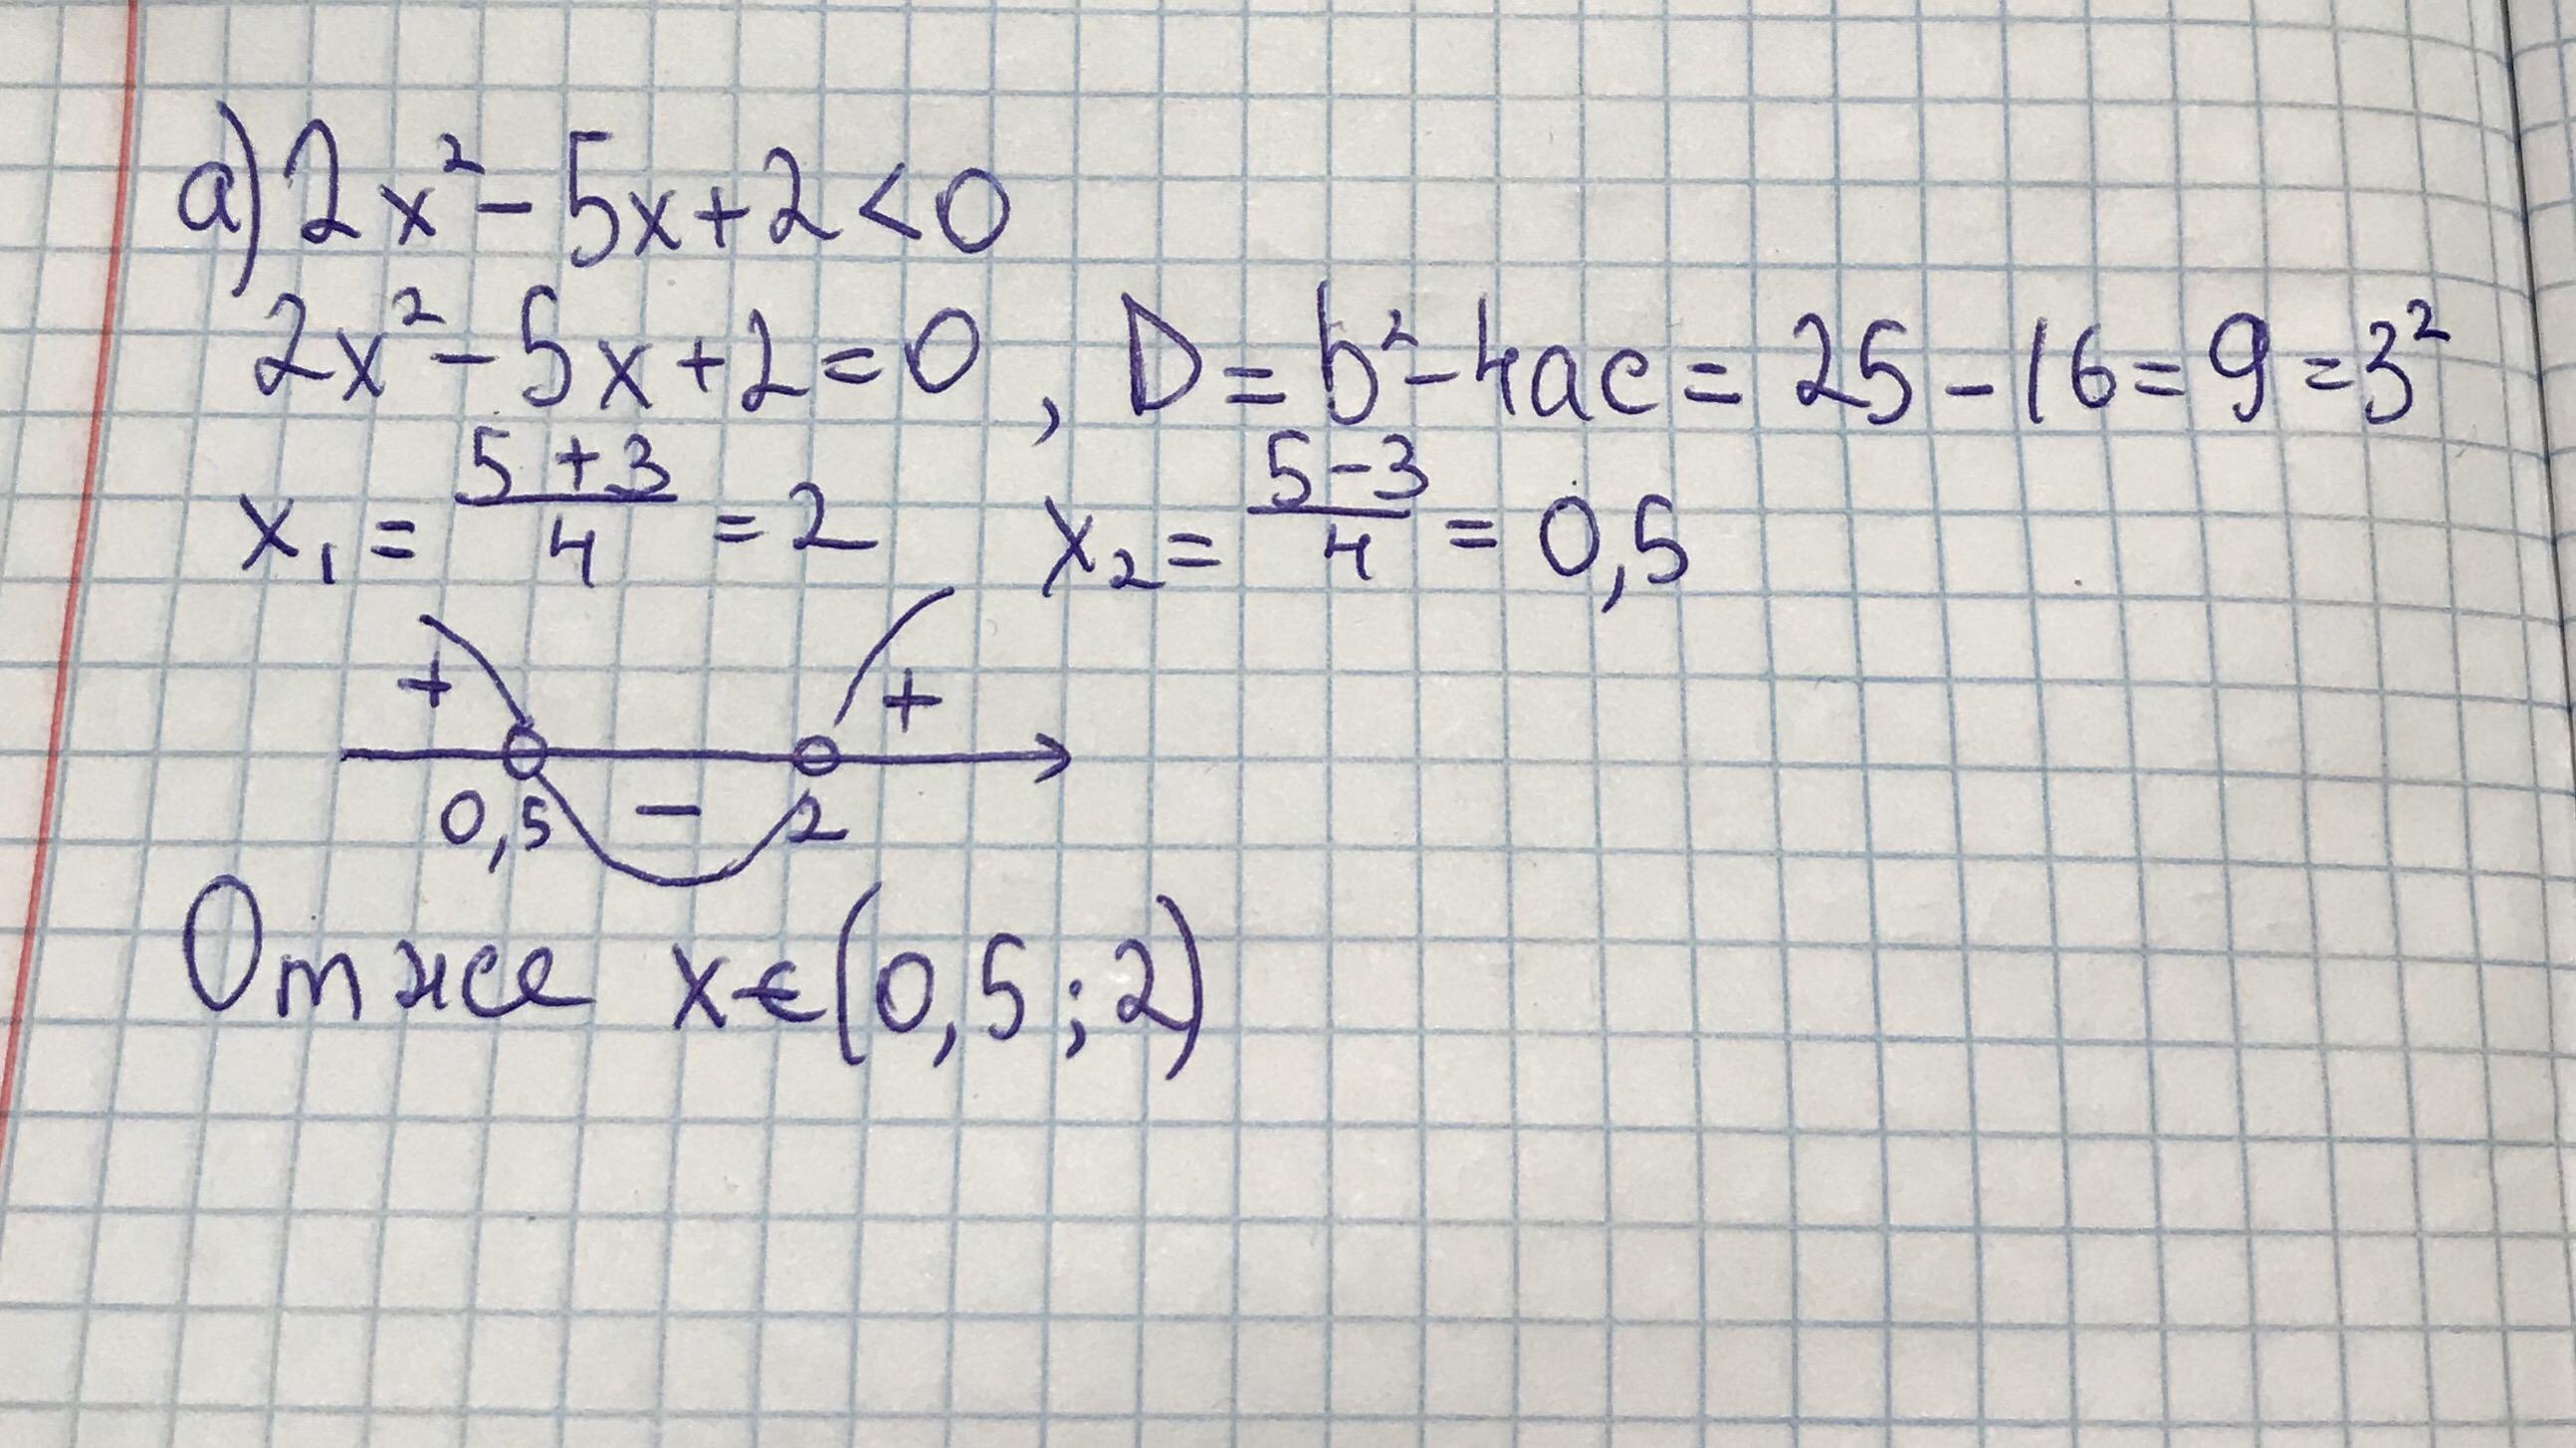 а) 2x² - 5x + 2 < 0
2x² - 5x + 2 = 0 , D = b² - 4ac = 25 - 16 = 9 = 3²
x₁ = (5 + 3)/4 = 2 x₂ = (5 - 3)/4 = 0,5
+ +
0,5 - 2
Отже x ∈ (0,5 ; 2)